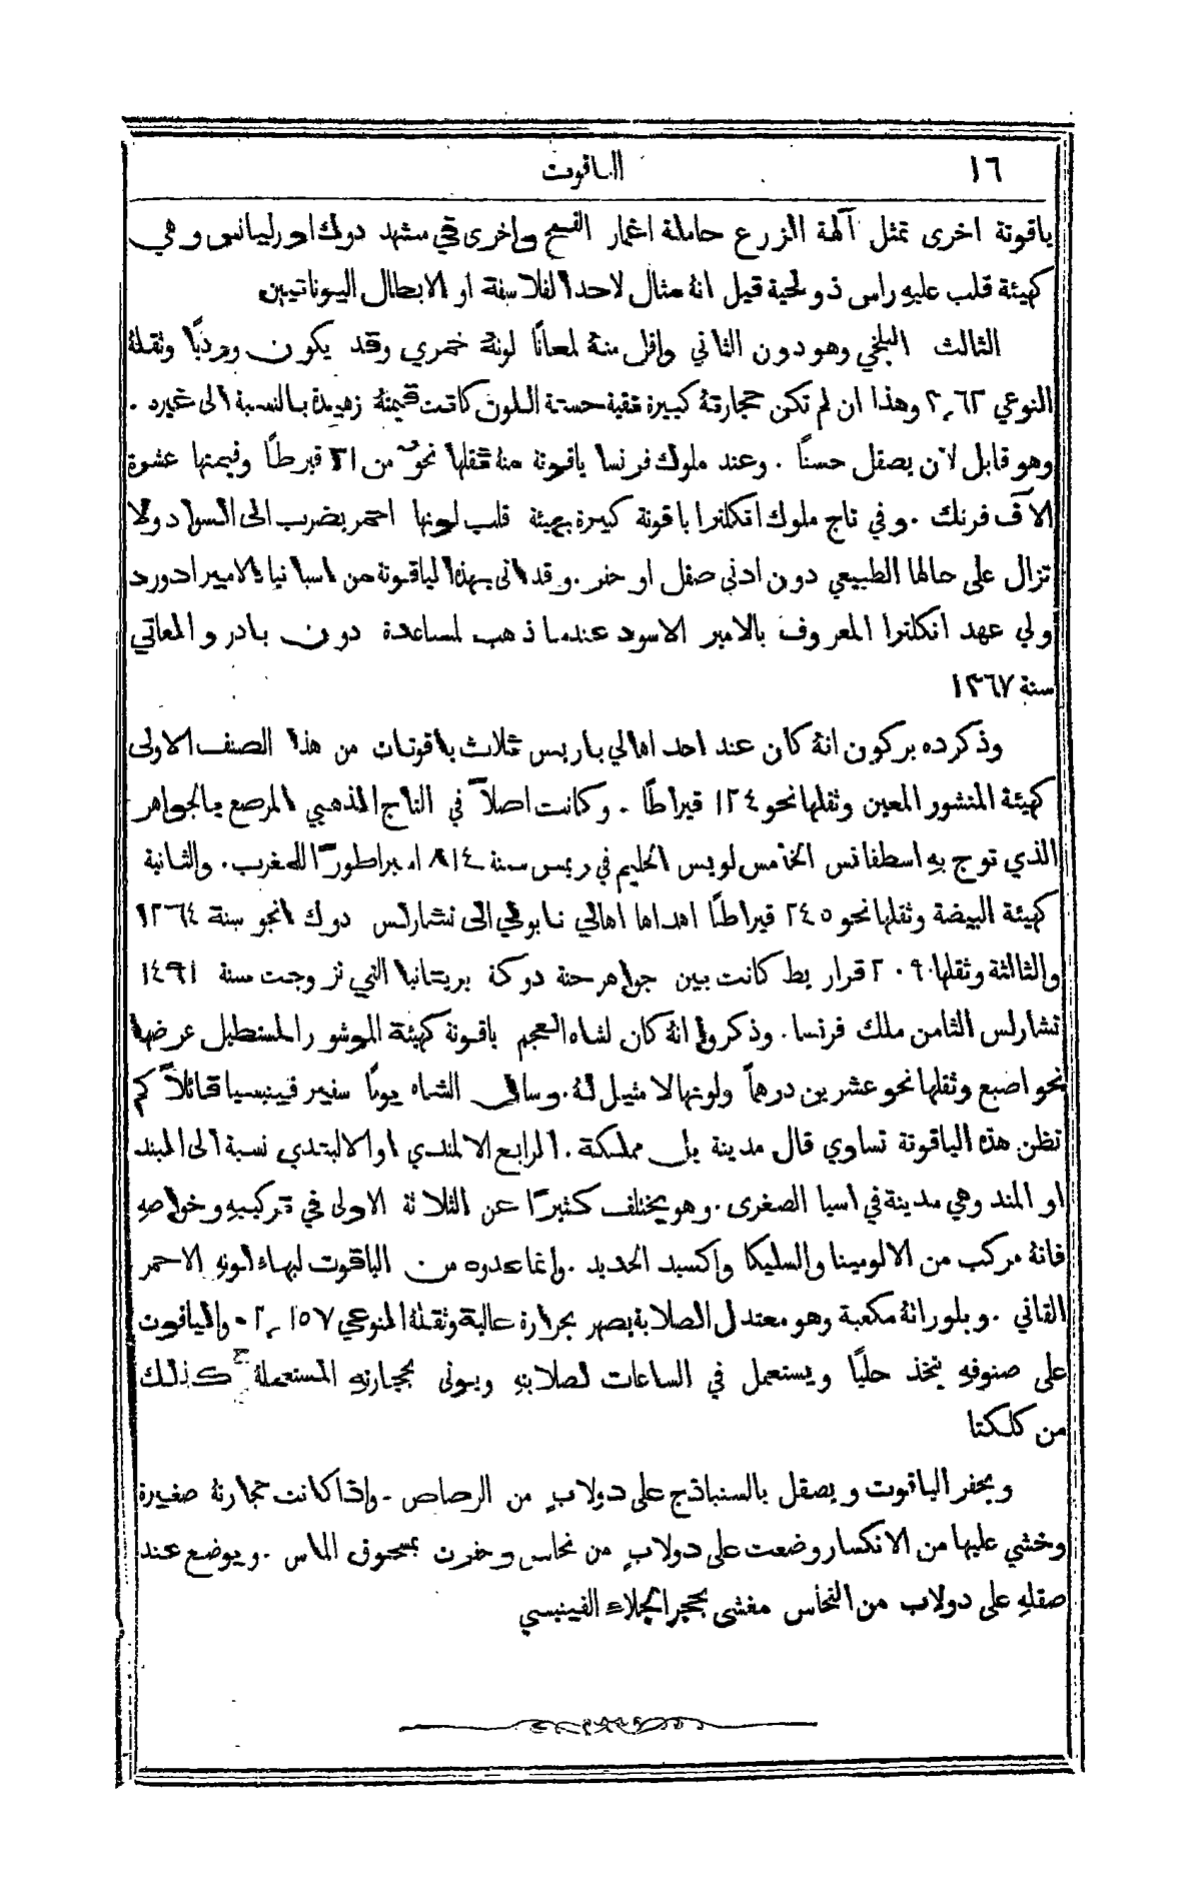 ١٦ الياقوت
ياقوتة اخرى تمثل آلهة الزرع حاملة اغمار القمح واخرى في مشهد دوك اورليانس وهي
كهيئة قلب عليهِ راس ذو لحية قيل انهُ مثال لاحد الفلاسفة او الابطال اليونانيين
الثالث البلخي وهو دون الثاني واقل منهُ لمعانًا لونهُ خمري وقد يكون ورديًّا وثقلهُ
النوعي ٢٫٦٢ وهذا ان لم تكن حجارتهُ كبيرة نقية حسنة اللون كانت قيمتهُ زهيدة بالنسبة الى غيره .
وهو قابل لان يصقل حسنًا . وعند ملوك فرنسا ياقوتة منهُ ثقلها نحوٌ من ٢١ قيرطًا وقيمتها عشرة
الآف فرنك . وفي تاج ملوك انكلترا ياقوتة كبيرة بهيئة قلب لونها احمر يضرب الى السواد ولا
تزال على حالها الطبيعي دون ادنى صقل او حفر . وقد اتى بهذه الياقوتة من اسبانيا الامير ادورد
ولي عهد انكلترا المعروف بالامير الاسود عندما ذهب لمساعدة دون بادرو المعاتي
سنة ١٣٦٧
وذكر ده بركون انهُ كان عند احد اهالي باريس ثلاث ياقوتات من هذا الصنف الاولى
كهيئة المنشور المعين وثقلها نحو ١٢٤ قيراطًا . وكانت اصلاً في التاج الذهبي المرصع بالجواهر
الذي توج بهِ اسطفانس الخامس لويس الحليم في ريمس سنة ٨١٤ امبراطورًا للمغرب . والثانية
كهيئة البيضة وثقلها نحو ٢٤٥ قيراطًا اهداها اهالي نابولي الى تشارلس دوك انجو سنة ١٢٦٤
والثالثة وثقلها ٢٠٩ قراريط كانت بين جواهر حنة دوكة بريتانيا التي تزوجت سنة ١٤٩١
تشارلس الثامن ملك فرنسا . وذكروا انهُ كان لشاه العجم ياقوتة كهيئة الموشور المستطيل عرضها
نحو اصبع وثقلها نحو عشرين درهمًا ولونها لا مثيل لهُ . وسال الشاه يومًا سفير فينيسيا قائلاً كم
تظن هذه الياقوتة تساوي قال مدينة بل مملكة . الرابع الالمندي او الالبندي نسبة الى البند
او المند وهي مدينة في اسيا الصغرى . وهو يختلف كثيرًا عن الثلاثة الاولى في تركيبهِ وخواصهِ
فانهُ مركب من الالومينا والسليكا واكسيد الحديد . وانما عدوه من الياقوت لبهاء لونهِ الاحمر
القاني . وبلوراتهُ مكعبة وهو معتدل الصلابة يصهر بحرارة عالية وثقلهُ النوعي ٢٫١٥٧ . والياقوت
على صنوفهِ يتخذ حليًا ويستعمل في الساعات لصلابتهِ ويوتى بحجارتهِ المستعملة كذلك
من كلكتا
ويحفر الياقوت ويصقل بالسنباذج على دولابٍ من الرصاص . واذا كانت حجارتهُ صغيرة
وخشي عليها من الانكسار وضعت على دولابٍ من نحاس وحفرت بمسحوق الماس . ويوضع عند
صقلهِ على دولاب من النحاس مغشى بحجر الجلاء الفينيسي